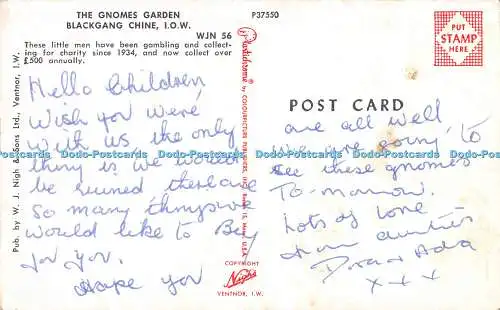 THE GNOMES GARDEN
BLACKGANG CHINE, I.O.W.
WJN 56
These little men have been gambling and collect-
ing for charity since 1934, and now collect over
£500 annually.
P37550
PUT
STAMP
HERE
Pub. by W. J. Nigh & Sons Ltd., Ventnor, I.W.
Hello Children,
Wish you were
with us, the only
thing is we would
be ruined there are
So many things we
would like to Buy
for you.
Hope you
by COLOURPICTURE PUBLISHERS, INC.
MASS. U.S.A.
COPYRIGHT
Nigh
VENTNOR, I.W.
POST CARD
are all well
we are going to
see these gnomes
To-morrow.
Lots of love
from aunties
Dora + Ada
x + +
Dodo-Postcards Dodo-Postcards Dodo-Postcards Dodo-Postcards Dodo-Postcards